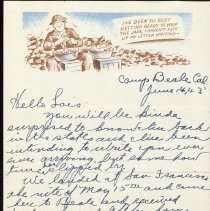 I'VE BEEN SO BUSY
GETTING READY TO WHIP
THE JAPS I HAVEN'T KEPT
UP MY LETTER WRITING—
Camp Beale Cal
June 16,
Hello Lois:
You will be kinda
surprised to know I'm back
in the states and I've been
intending to write you ever
since arriving, but shows how
time slipped by
We landed at San Francisco
the nite of May 15th and came
here to Beale and received